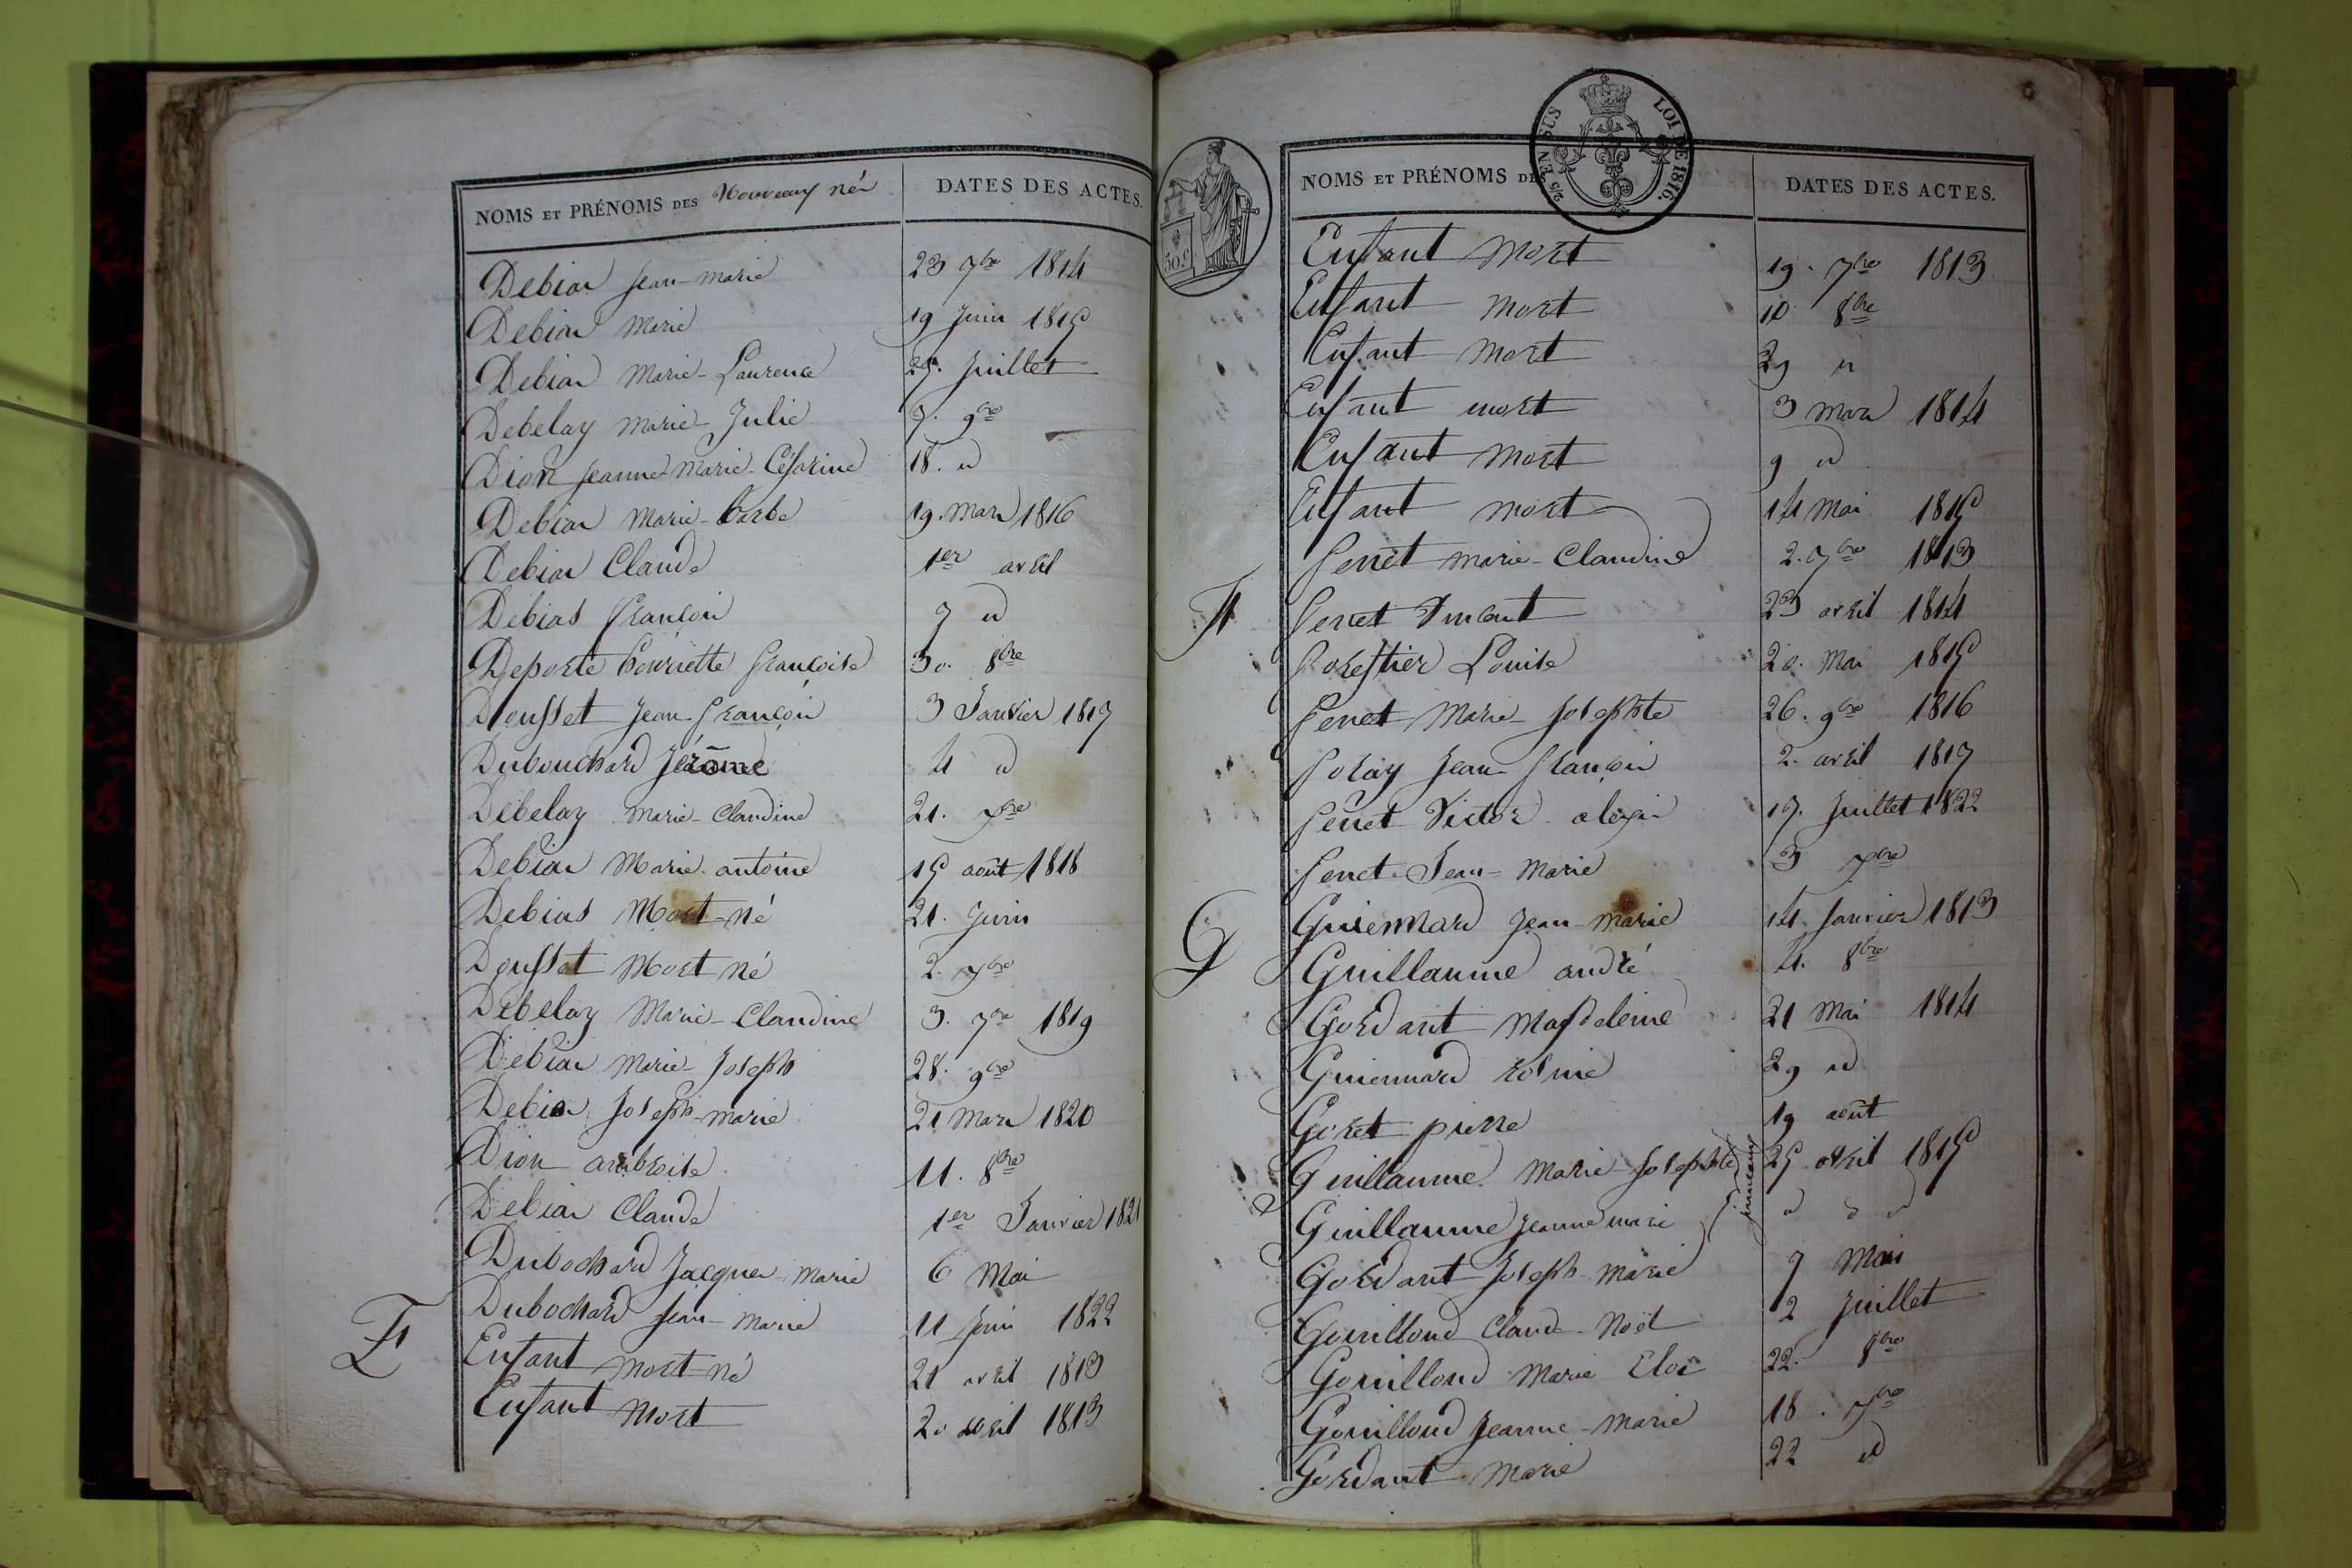 NOMS ET PRÉNOMS DES Nouveaux nés DATES DES ACTES.
Debias Jean-Marie 23 7bre 1814
Debias Marie 19 Juin 1815
Debias Marie-Laurence 25. Juillet
Debelay Marie-Julie 7. 9bre
Dion Jeanne Marie-Césarine 18. id
Debias Marie-barbe 19. Mars 1816
Debias Claude 1er avril
Debias françois 7 id
Deporte henriette françoise 30. 8bre
Dousset Jean-françois 3 Janvier 1817
Dubouchard Jérôme 4 id
Debelay Marie-Claudine 21. Xbre
Debias Marie-antoine 15 août 1818
Debias Mort-né 21. Juin
Dousset Mort né 2. Xbre
Debelay Marie-Claudine 3. 7bre 1819
Debias Marie-Joseph 28. 9bre
Debias Joseph-Marie 21 Mars 1820
Dion ambroise 11. 8bre
Debias Claude 1er Janvier 1821
Dubochard Jacques-Marie 6 Mai
Dubochard Jean-Marie 11 Juin 1822
E Enfant mort-né 21 avril 1813
Enfant Mort 20 avril 1813
50 c
2/5 EN SUS LOI DE 1816.
NOMS ET PRÉNOMS DES DATES DES ACTES.
Enfant Mort 19. 7bre 1813
Enfant mort 10 8bre
Enfant Mort 29 id
Enfant mort 3 Mars 1814
Enfant Mort 9 id
Enfant mort 14 Mai 1815
ferret Marie-Claudine 2. 7bre 1813
F ferret Vincent 23 avril 1814
forestier Louise 20. Mai 1815
ferret Marie-Josephte 26. 9bre 1816
foray Jean-françois 2. avril 1817
ferret Victor-alexis 17. Juillet 1822
ferret Jean-Marie 3 Xbre
G Guiennard Jean-Marie 14. Janvier 1813
Guillaume andré 4. 8bre
Gordant Magdeleine 21 Mai 1814
Guiennard rosine 29 id
Goret pierre 19 août
Guillaume Marie-Josephte 25 avril 1815
jumeaux
Guillaume Jeanne marie id id id
Gordant Joseph-Marie 7 Mai
Gouilloud Claude-Noël 2 Juillet
Gouilloud Marie Eloi 22. 8bre
Gouilloud Jeanne-Marie 18. Xbre
Gordant Marie 22 id